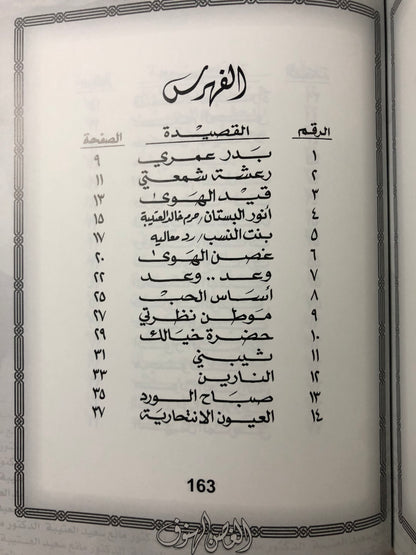 الفهرس
الرقم القصيدة الصفحة
١ بدر عمري ٩
٢ رعشة شمعتي ١١
٣ قيد الهوى ١٣
٤ أنور البستان/حرم خالد العتيبة ١٥
٥ بنت النسب/رد معاليه ١٧
٦ غصن الهوى ٢٠
٧ وعد .. وعد ٢٢
٨ أساس الحب ٢٥
٩ موطن نظرتي ٢٧
١٠ حضرة خيالك ٢٩
١١ شيبني ٣١
١٢ النارين ٣٣
١٣ صباح الورد ٣٥
١٤ العيون الانتحارية ٣٧
163